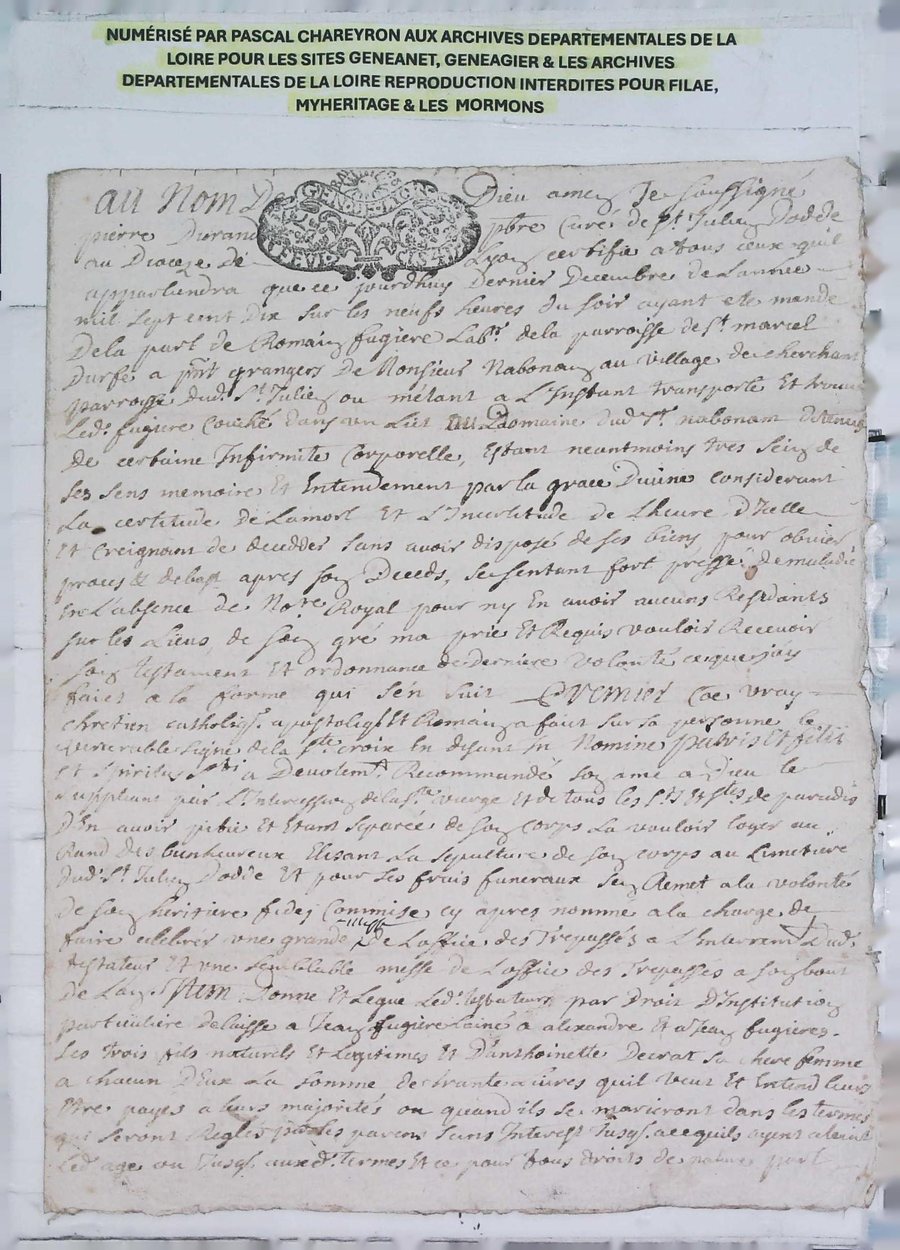 NUMÉRISÉ PAR PASCAL CHAREYRON AUX ARCHIVES DEPARTEMENTALES DE LA
LOIRE POUR LES SITES GENEANET, GENEAGIER & LES ARCHIVES
DEPARTEMENTALES DE LA LOIRE REPRODUCTION INTERDITES POUR FILAE,
MYHERITAGE & LES MORMONS
au Nom De Dieu amen Je soussigné
pierre Durand pbre Curé de St Julien Dodde
au Dioceze de Lyon certifie a tous ceux quil
appartiendra que ce jourdhuy Dernier Decembre de Lannee
mil sept cent dix sur les neufs heures du soir ayant ete mande
De la part de Romain fugiere Labr. de la parroisse de St. marcel
Durfé a pnt grangers De Monsieur Nabonan au village de cherchant
parroisse dud. St Julien ou métant a L'Instant transporte Et trouvé
Led. fugiere Couché dans un Lict au Domaine dud Sr. nabonam detenus
de certaine Infirmite Corporelle, Estant neantmoins tres sein de
ses sens memoire Et Entendement par la grace Divine considerant
La certitude de Lamort Et L'Incertitude de Lheure D'Icelle
Et Creignant de decedder sans avoir disposé de ses biens, pour obvier
proces & debast apres son Deceds, se sentant fort pressé de maladie
En L'absence de Nore Royal pour ny En avoir aucuns Residants
sur les Lieux, de son gré ma prie Et Requis vouloir Recevoir
son testament Et ordonnance de Derniere volonté ce que jay
faict a la forme qui s'en suit Premier Coe vray
Chretien catholiq. apostoliq. Et Romain a faict sur sa personne le
venerable signe de la Ste croix En disant In Nomine patris Et filii
Et spiritus Sti a Devotemt. Recommandé son ame a Dieu le
suppliant par L'Intercession de la Ste vierge Et de tous les Sts Et Stes de paradis
D'En avoir pitie Et Etant separée de son corps La vouloir loger au
Rand des bunheureux Elisant La sepulture de son corps au Cimetiere
dud. St. Julien Dodde Et pour ses frais funeraux sen Remet a la volonté
De son heritiere fidei Commise cy apres nomme a la charge de
faire celebrer une grande messe De L'office des Trepassés a L'Enterremt Dud.
testateur Et une semblable messe de L'office des Trepassés a son bout
de Lan. Item Donne Et Legue Led. testateur par Droit D'Institution
particuliere delaisse a Jean fugiere Lainé a alexandre Et a Jean fugieres
ses trois fils naturels Et Legitimes Et D'anthoinette Decrat sa chere femme
a chacun D'Eux La somme de trante Livres quil veut Et Entend Leurs
Etre payes a leurs majorités ou quand ils se marieront dans les termes
qui seront Reglés par les parens sans Interest Jusq. ace quils ayent atteint
Led. age ou Jusq. auxd. termes Et ce pour tous droits de nature part